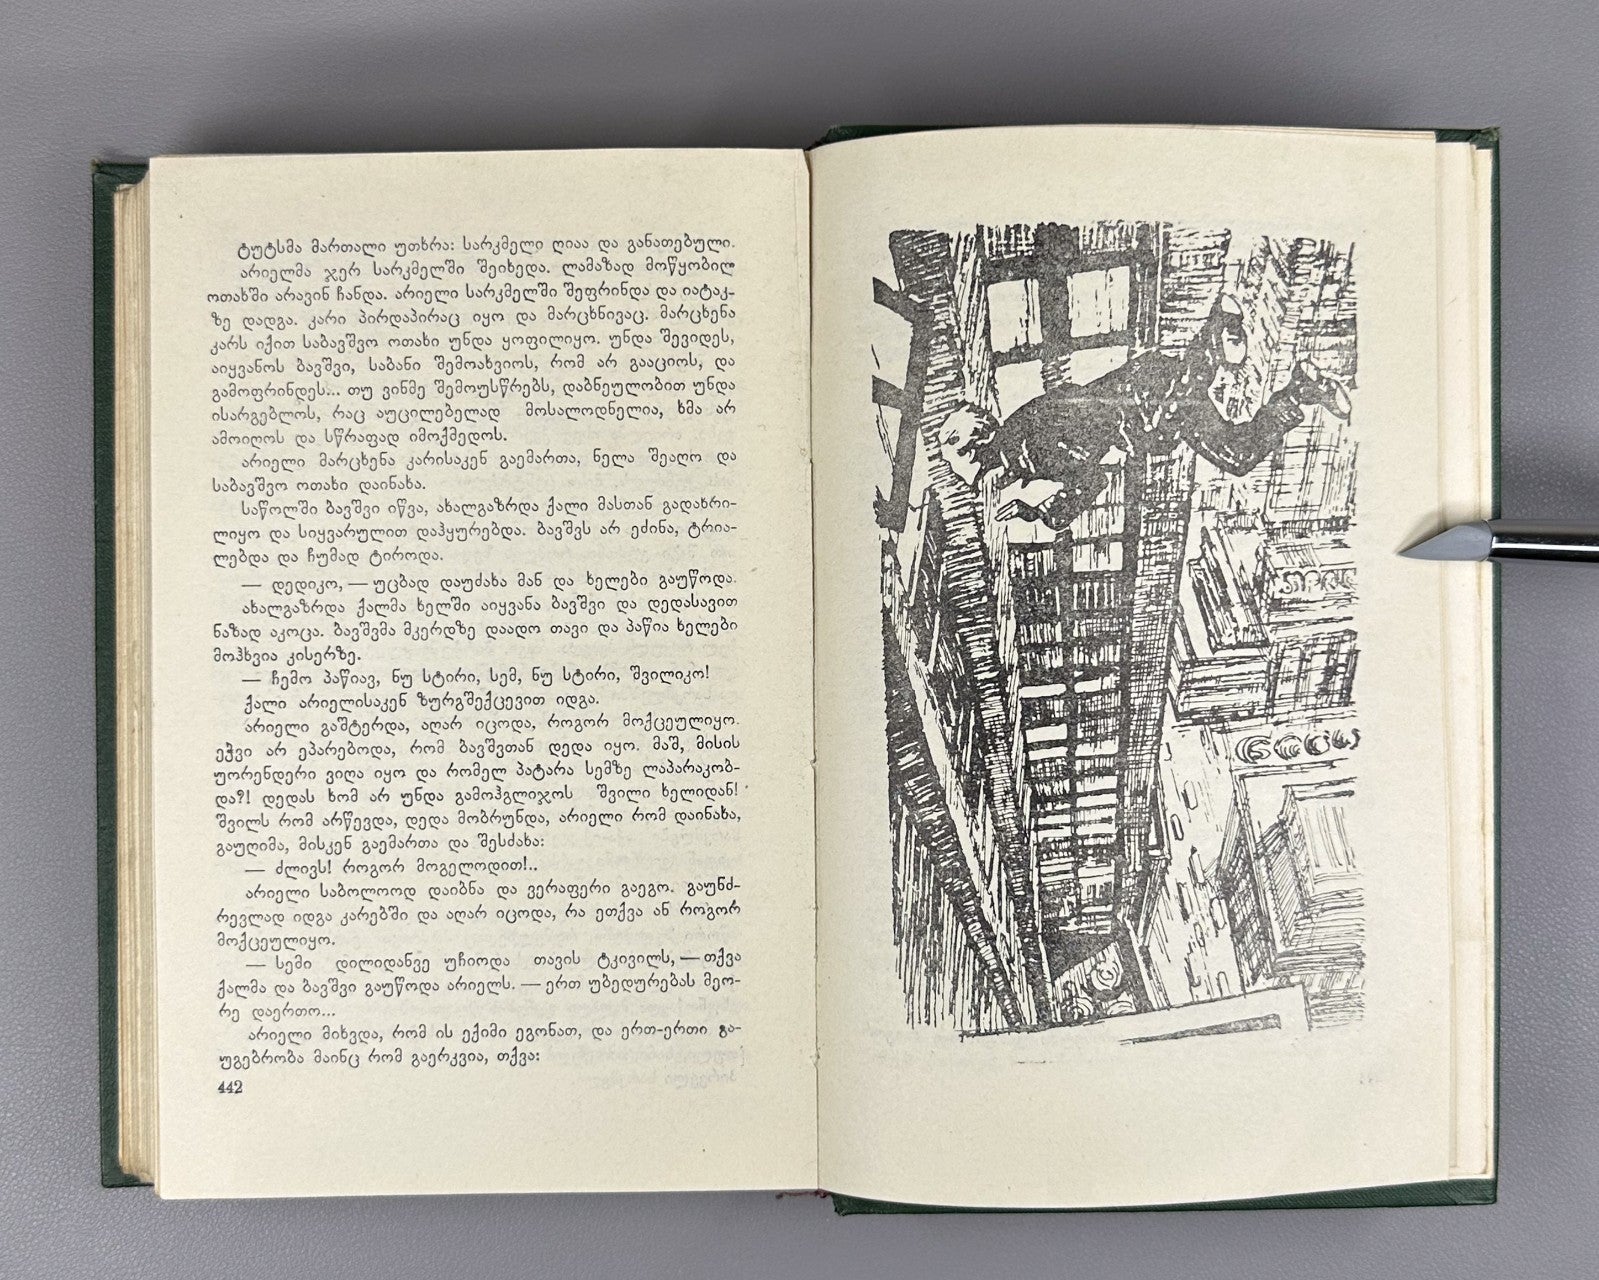 ტუტსმა მართალი უთხრა: სარკმელი ღიაა და განათებული.
არიელმა ჯერ სარკმელში შეიხედა. ლამაზად მოწყობილ
ოთახში არავინ ჩანდა. არიელი სარკმელში შეფრინდა და იატაკ-
ზე დადგა. კარი პირდაპირაც იყო და მარცხნივაც. მარცხენა
კარს იქით საბავშვო ოთახი უნდა ყოფილიყო. უნდა შევიდეს,
აიყვანოს ბავშვი, საბანი შემოახვიოს, რომ არ გააციოს, და
გამოფრინდეს... თუ ვინმე შემოუსწრებს, დაბნეულობით უნდა
ისარგებლოს, რაც აუცილებელად მოსალოდნელია, ხმა არ
ამოიღოს და სწრაფად იმოქმედოს.
არიელი მარცხენა კარისაკენ გაემართა, ნელა შეაღო და
საბავშვო ოთახი დაინახა.
საწოლში ბავშვი იწვა, ახალგაზრდა ქალი მასთან გადახრი-
ლიყო და სიყვარულით დაჰყურებდა. ბავშვს არ ეძინა, ტრია-
ლებდა და ჩუმად ტიროდა.
— დედიკო, — უცბად დაუძახა მან და ხელები გაუწოდა.
ახალგაზრდა ქალმა ხელში აიყვანა ბავშვი და დედასავით
ნაზად აკოცა. ბავშვმა მკერდზე დაადო თავი და პაწია ხელები
მოჰხვია კისერზე.
— ჩემო პაწიავ, ნუ სტირი, სემ, ნუ სტირი, შვილიკო!
ქალი არიელისაკენ ზურგშექცევით იდგა.
არიელი გაშტერდა, აღარ იცოდა, როგორ მოქცეულიყო.
ეჭვი არ ეპარებოდა, რომ ბავშვთან დედა იყო. მაშ, მისის
უორენდერი ვიღა იყო და რომელ პატარა სემზე ლაპარაკობ-
და?! დედას ხომ არ უნდა გამოჰგლიჯოს შვილი ხელიდან!
შვილს რომ არწევდა, დედა მობრუნდა, არიელი რომ დაინახა,
გაუღიმა, მისკენ გაემართა და შესძახა:
— ძლივს! როგორ მოგელოდით!..
არიელი საბოლოოდ დაიბნა და ვერაფერი გაეგო. გაუნძ-
რევლად იდგა კარებში და აღარ იცოდა, რა ეთქვა ან როგორ
მოქცეულიყო.
— სემი დილიდანვე უჩიოდა თავის ტკივილს, — თქვა
ქალმა და ბავშვი გაუწოდა არიელს. — ერთ უბედურებას მეო-
რე დაერთო...
არიელი მიხვდა, რომ ის ექიმი ეგონათ, და ერთ-ერთი გა-
უგებრობა მაინც რომ გაერკვია, თქვა:
442